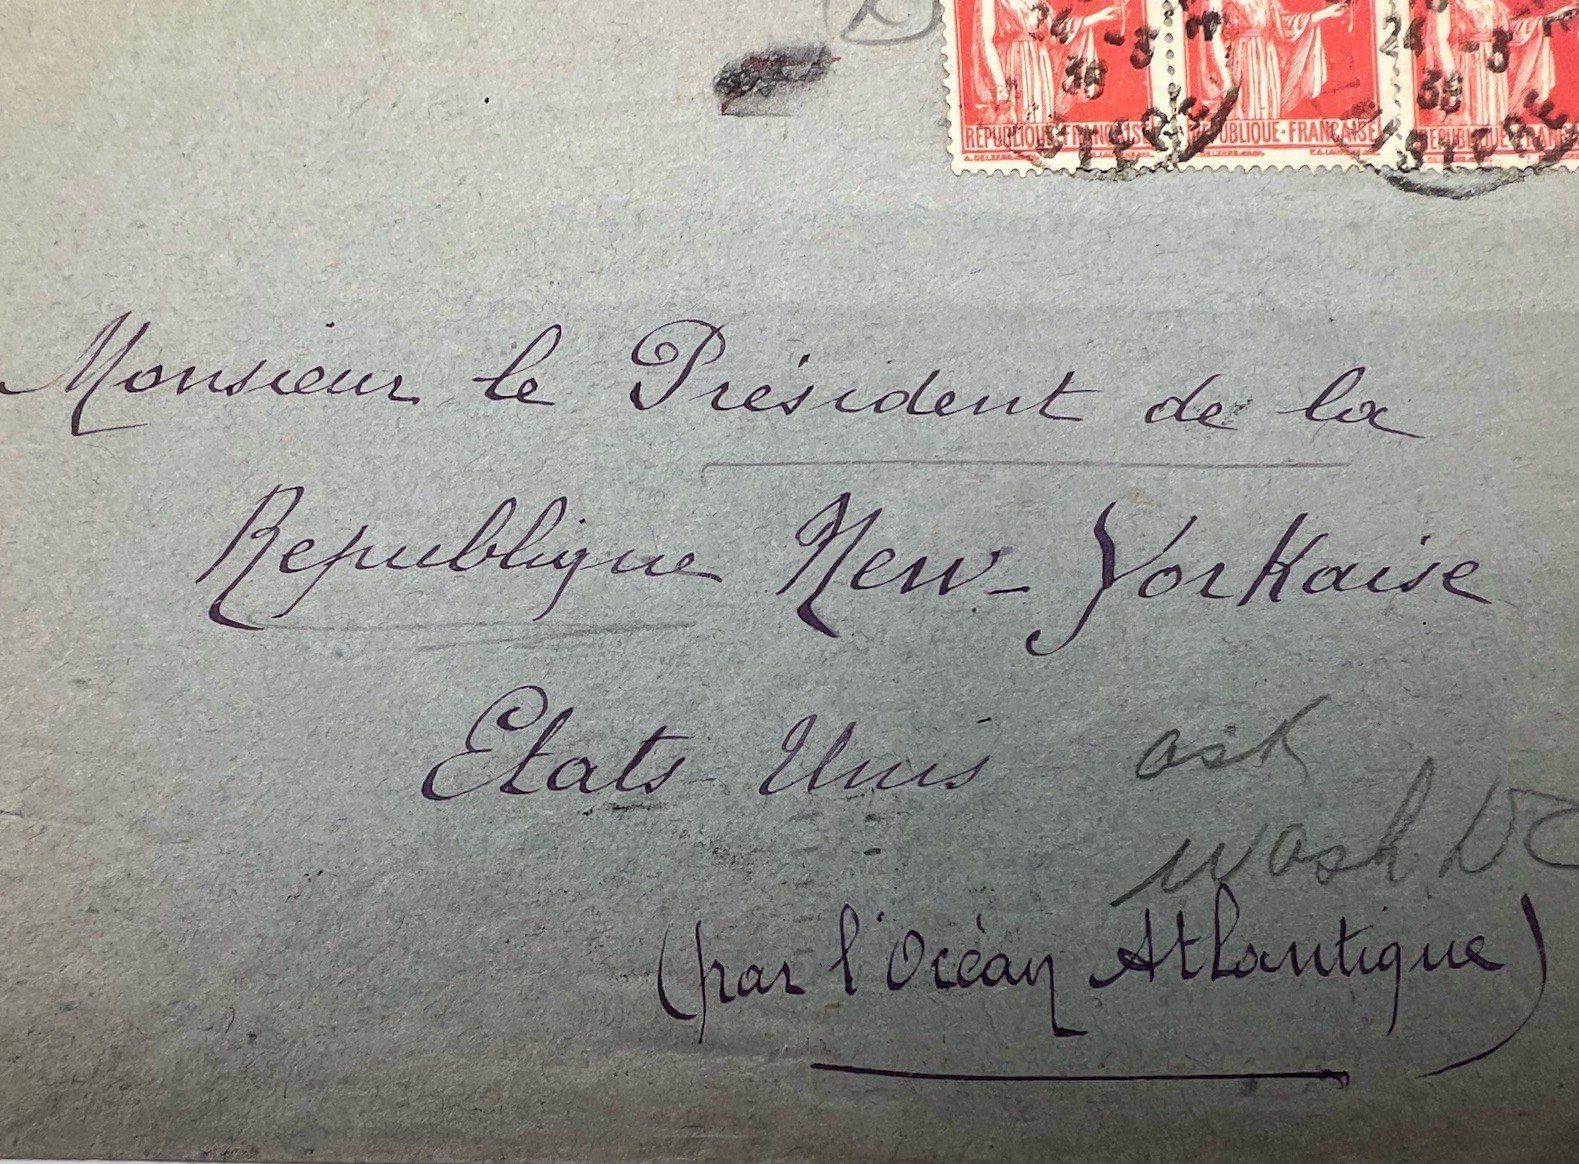 24 -3 24 -3
36 36
RÉPUBLIQUE-FRANÇAISE RÉPUBLIQUE-FRANÇAISE RÉPUBLIQUE-FRANÇAISE
Monsieur le Président de la
Republique New-Yorkaise
Etats-Unis
ask
Wash DC
(par l'Océan Atlantique)